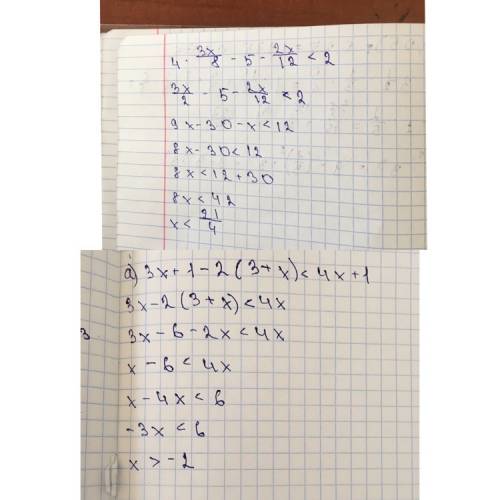 4 · 3x/8 - 5 - 2x/12 < 2
3x/2 - 5 - 2x/12 < 2
9x - 30 - x < 12
8x - 30 < 12
8x < 12 + 30
8x < 42
x < 21/4
a) 3x + 1 - 2 (3 + x) < 4x + 1
3x - 2 (3 + x) < 4x
3x - 6 - 2x < 4x
x - 6 < 4x
x - 4x < 6
-3x < 6
x > -2